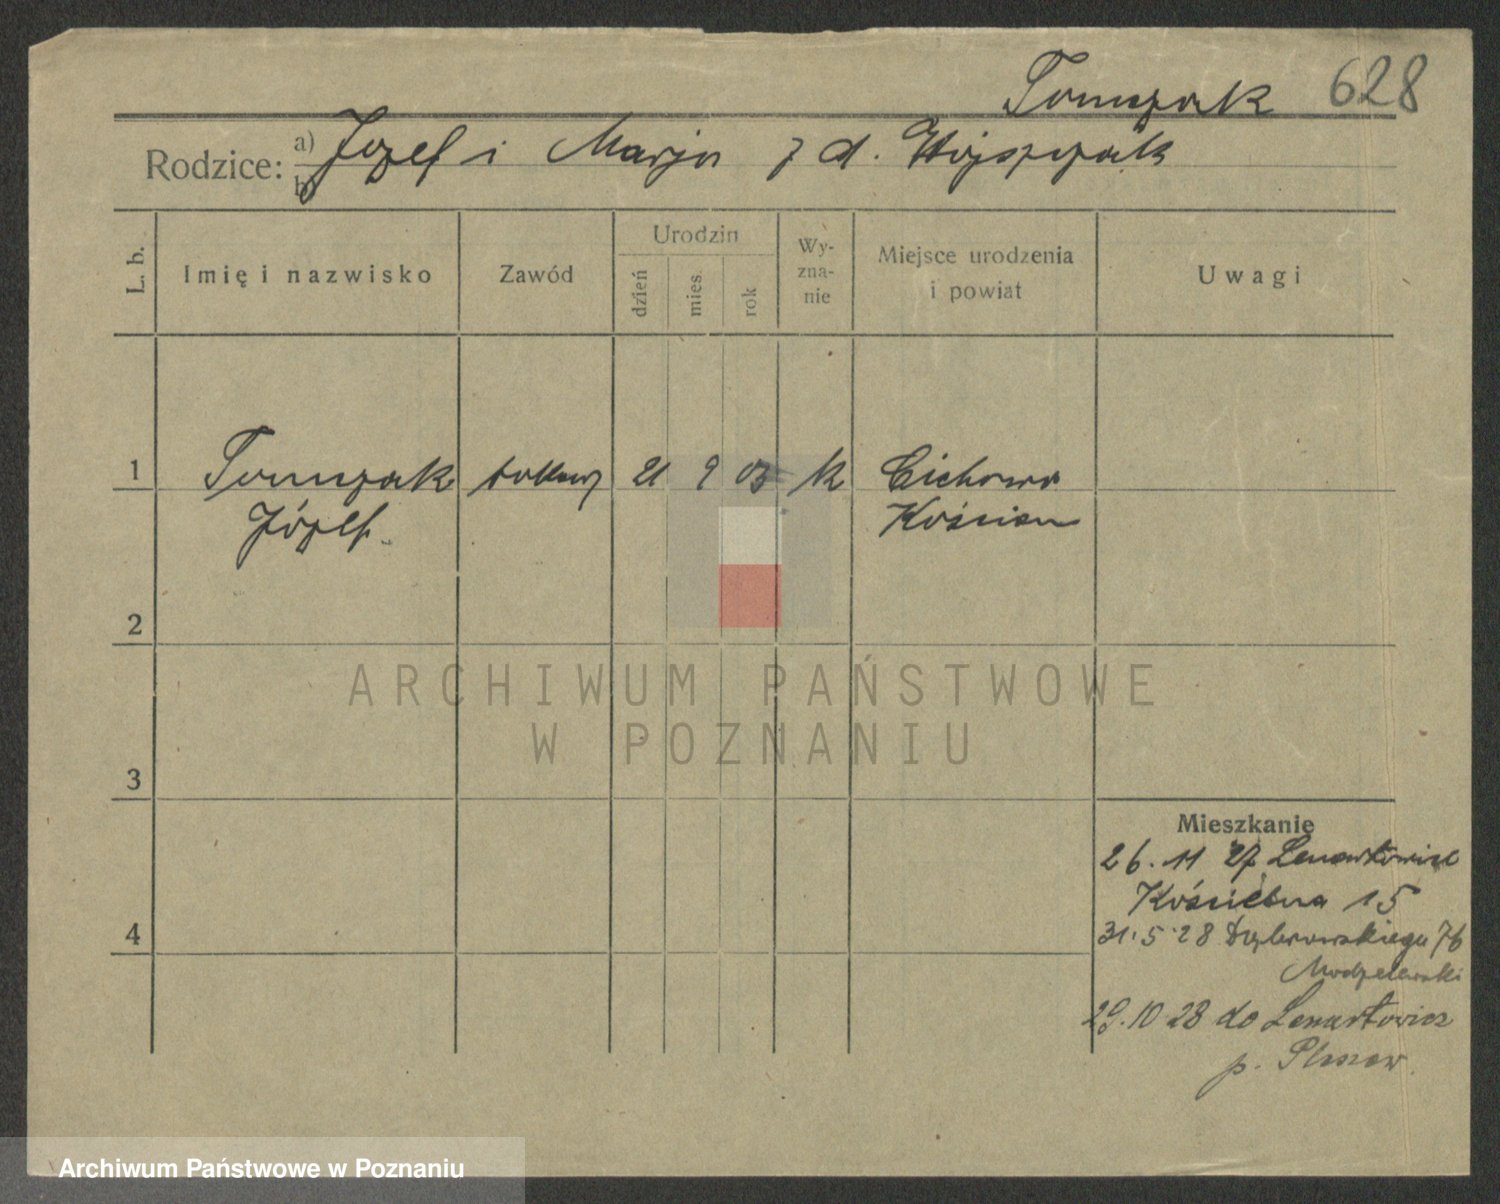 Tomczak 628
Rodzice: a) Józef i Marja z d. Wojszczak
b)
L. b.
Imię i nazwisko
Zawód
Urodzin
dzień
mies.
rok
Wy-
zna-
nie
Miejsce urodzenia
i powiat
Uwagi
1 Tomczak 21 9 03 k Cichowo
Józef Kościan
2
3
4
ARCHIWUM PAŃSTWOWE
W POZNANIU
Mieszkanie
26. 11 27 Lenartowice
Kościelna 15
31. 5 28 Dąbrowskiego 76
Modzelewski
29. 10 28 do Lenartowice
p. Pleszew
Archiwum Państwowe w Poznaniu